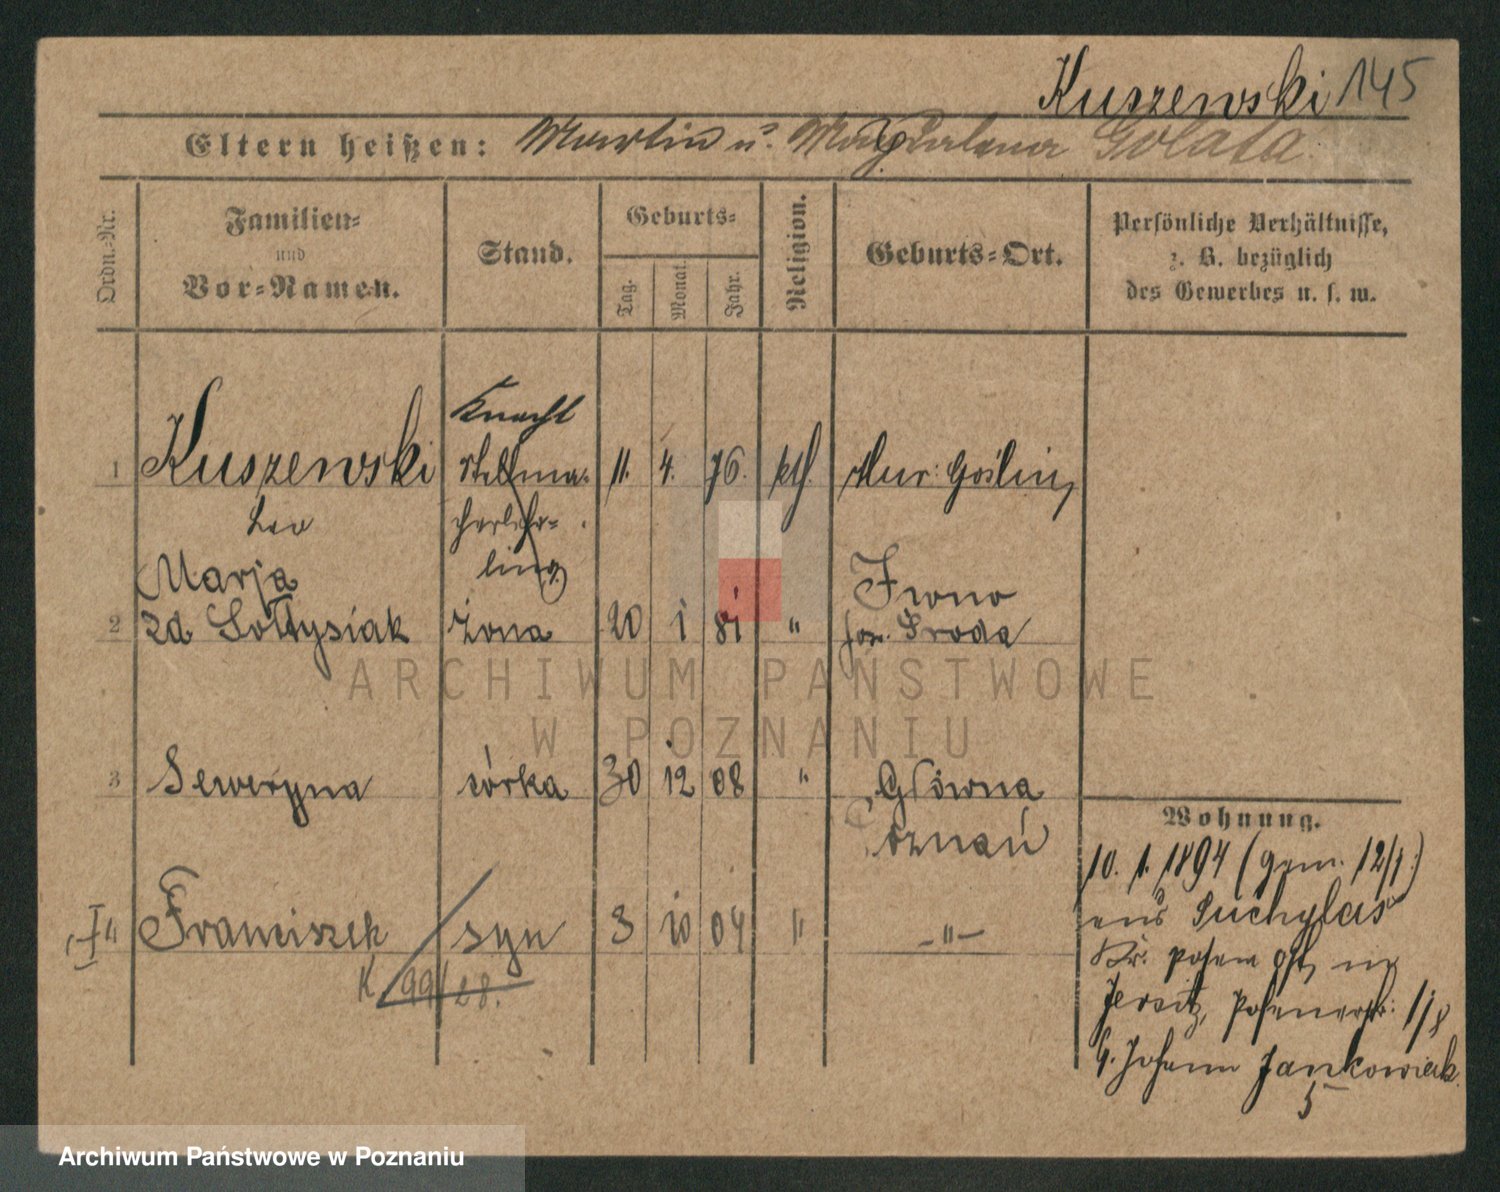 Kuszewski 145
Eltern heißen: Martin u. Magdalena Golata
Ordn.-Nr.
Familien-
und
Vor-Namen.
Stand.
Geburts-
Tag.
Monat.
Jahr.
Religion.
Geburts-Ort.
Persönliche Verhältnisse,
z. B. bezüglich
des Gewerbes u. s. w.
Knecht
1 Kuszewski Stellma- 11. 4. 76. kth. Mur: Goślin,
Leo cherlehr-
ling
Marja Iwno
2 zd Sołtysiak żona 20 1 81 " pow. Sroda
3 Seweryna córka 30 12 08 " Główna
Poznań
4 Franciszek syn 3 10 04 " -"-
K. 99/28.
Wohnung.
10. 1. 1894 (gem. 12/1.)
aus Suchylas
Kr. Posen Ost, in
Jersitz, Posenerstr:
b. Johann Jankowiak.
5
ARCHIWUM PAŃSTWOWE
W POZNANIU
Archiwum Państwowe w Poznaniu